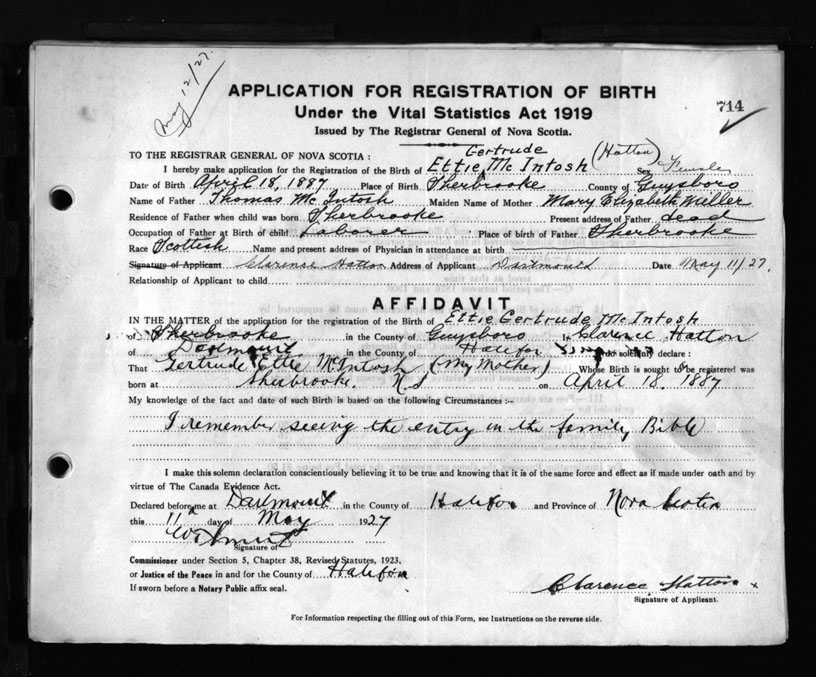 May 12/27.
APPLICATION FOR REGISTRATION OF BIRTH
714
Under the Vital Statistics Act 1919
Issued by The Registrar General of Nova Scotia.
TO THE REGISTRAR GENERAL OF NOVA SCOTIA :
I hereby make application for the Registration of the Birth of Ettie Gertrude Mc Intosh (Hatton) Sex Female
Date of Birth April 18, 1887 Place of Birth Sherbrooke County of Guysboro
Name of Father Thomas Mc Intosh Maiden Name of Mother Mary Elizabeth
Residence of Father when child was born Sherbrooke Present address of Father dead
Occupation of Father at Birth of child Laborer Place of birth of Father Sherbrooke
Race Scottish Name and present address of Physician in attendance at birth
Signature of Applicant Clarence Hatton Address of Applicant Dartmouth Date May 11/27.
Relationship of Applicant to child
AFFIDAVIT
IN THE MATTER of the application for the registration of the Birth of Ettie Gertrude Mc Intosh
of Sherbrooke in the County of Guysboro Clarence Hatton
of Dartmouth in the County of Halifax do solemnly declare :
That Gertrude Ettie McIntosh (My Mother) Whose Birth is sought to be registered was
born at Sherbrooke. N.S on April 18. 1887
My knowledge of the fact and date of such Birth is based on the following Circumstances :-
I remember seeing the entry in the family Bible
I make this solemn declaration conscientiously believing it to be true and knowing that it is of the same force and effect as if made under oath and by
virtue of The Canada Evidence Act.
Declared before me at Dartmouth in the County of Halifax and Province of Nova Scotia
this 11 day of May 1927
Signature of
Commissioner under Section 5, Chapter 38, Revised Statutes, 1923,
or Justice of the Peace in and for the County of Halifax
If sworn before a Notary Public affix seal.
Clarence Hatton x
Signature of Applicant.
For Information respecting the filling out of this Form, see Instructions on the reverse side.